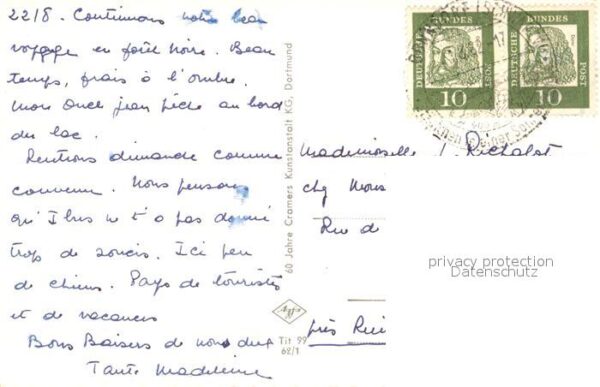 22/8. Continuons notre beau
voyage en forêt noire. Beau
temps, frais à l'ombre.
Mon Oncle Jean pêche au bord
du lac.
Rentrons dimanche comme
convenu. Nous pensons
qu'Ibis ne t'a pas donné
trop de soucis. Ici peu
de chiens. Pays de touristes
et de vacances
Bons Baisers de nous deux
Tante Madeleine
60 Jahre Cramers Kunstanstalt KG, Dortmund
Tit 99
62/1
DEUTSCHE BUNDES POST
10
DEUTSCHE BUNDES POST
10
Mademoiselle J. Richalot
chez Mons
Rue de
près Rui
privacy protection
Datenschutz